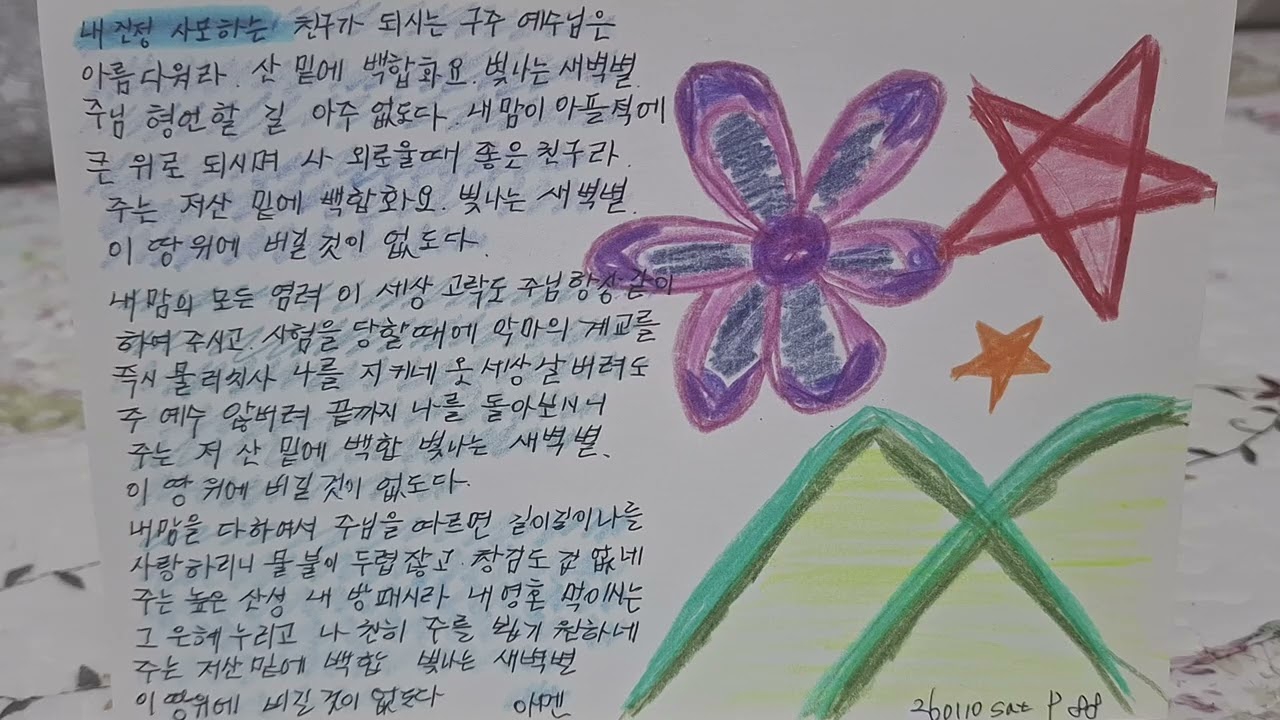 내 진정 사모하는 친구가 되시는 구주 예수님은
아름다워라. 산 밑에 백합화요. 빛나는 새벽별.
주님 형언할 길 아주 없도다. 내 맘이 아플적에
큰 위로 되시며 나 외로울때 좋은 친구라.
주는 저산 밑에 백합화요. 빛나는 새벽별.
이 땅위에 비길 것이 없도다.
내 맘의 모든 염려 이 세상 고락도 주님 항상 같이
하여 주시고. 시험을 당할때에 악마의 계교를
즉시 물리치사 나를 지키네 온 세상 날 버려도
주 예수 않버려 끝까지 나를 돌아보시니
주는 저 산 밑에 백합 빛나는 새벽별.
이 땅 위에 비길 것이 없도다.
내맘을 다하여서 주님을 따르면 길이길이 나를
사랑하리니 물불이 두렵잖고. 창검도 겁 없네
주는 높은 산성 내 방패시라 내 영혼 먹이시는
그 은혜 누리고 나 친히 주를 뵙기 원하네
주는 저산밑에 백합 빛나는 새벽별
이 땅위에 비길 것이 없도다 아멘
260110 sat P 88